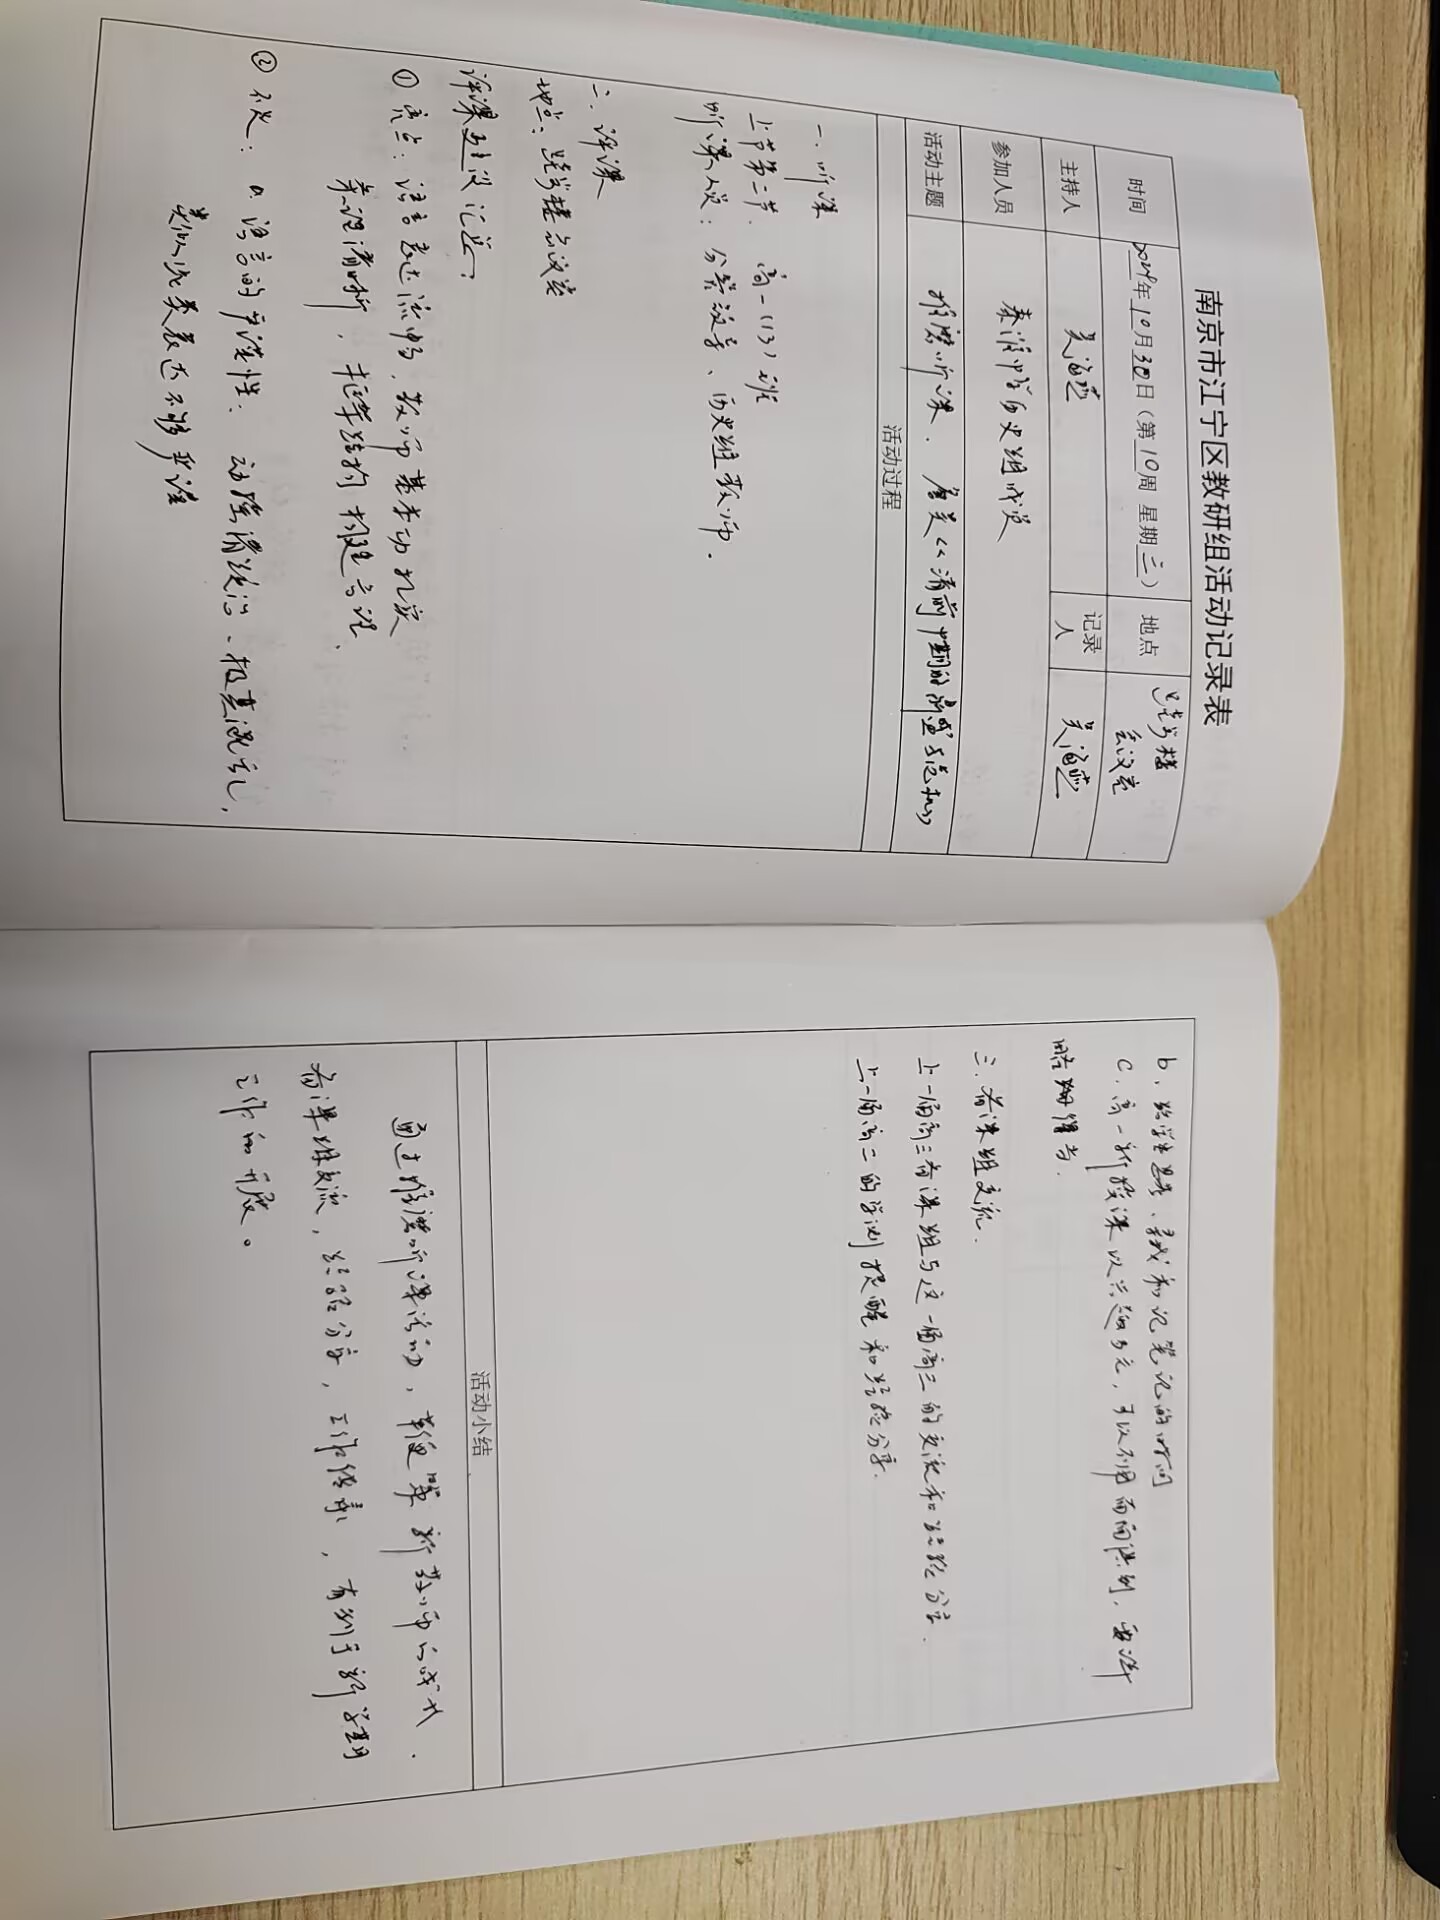 南京市江宁区教研组活动记录表
时间 2024年10月30日（第10周 星期三） 地点 楼会议室
主持人 吴海燕 记录人 吴海燕
参加人员 秦淮中学历史组成员
活动主题 推磨听课. 唐昊《清前中期的鼎盛与危机》
活动过程
一. 听课
上节第二节. 高一(13)班
听课人员: 分管领导、历史组教师.
二. 评课
地点: 楼会议室
评课建议汇总:
① 亮点: 语言表达流畅, 教师基本功扎实
条理清晰, 框架结构构建合理.
② 不足: a. 语言的严谨性: 动摇清统治、极其混乱,
类似此类表达不够严谨
b. 给学生思考、寻找和记笔记的时间
c. 高一新授课以兴趣为主, 可以不用面面俱到, 要详
略得当.
三. 备课组交流.
上一届高三备课组与这一届高三的交流和经验分享.
上一届高二的学测提醒和经验分享.
活动小结
通过推磨听课活动, 新教师的成长.
备课组交流, 经验分享, 工作传承, 有利于新学期
工作的开展。